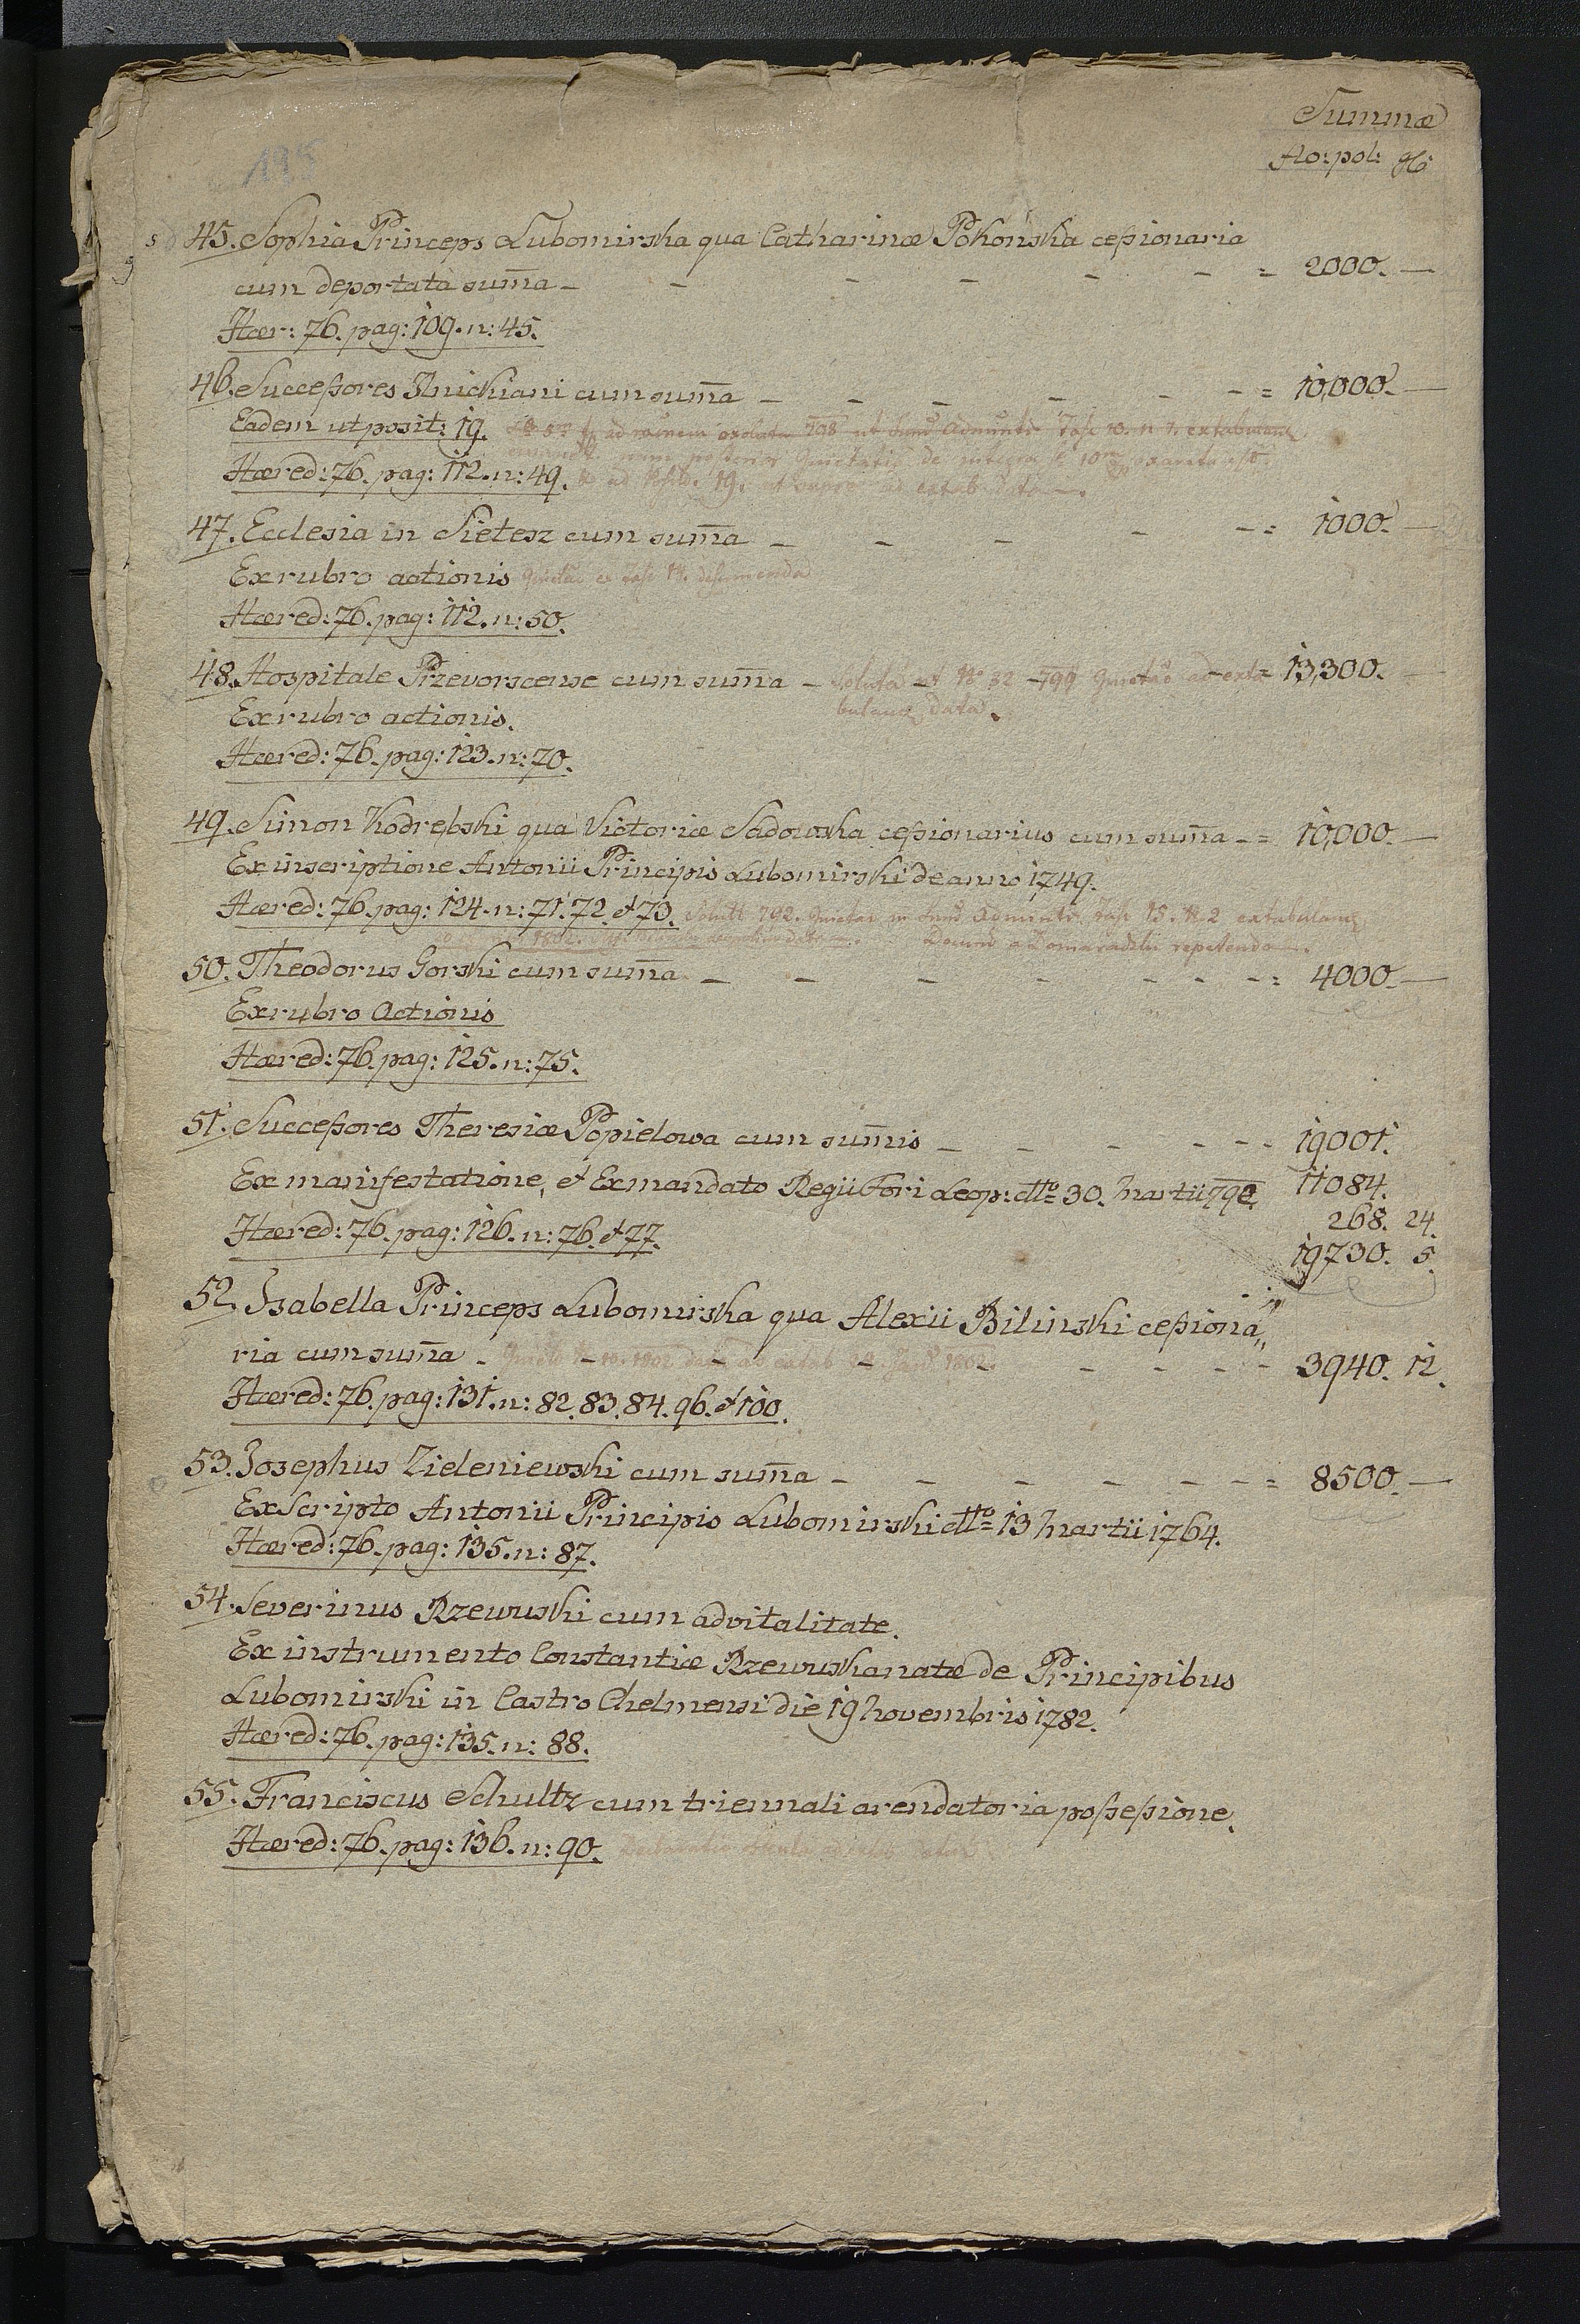 Summæ
flo: pol: gr:
195
45. Sophia Princeps Lubomirska qua Catharinæ Pokońska ceßionaria
cum deportata sum̄a - - - - - - = 2000. —
Hær: 76. pag: 109. n: 45.
46. Succeßores Knichiani cum sum̄a - - - - - - = 10,000. —
Eadem ut posit: 19.
Hæred: 76. pag: 112. n: 49.
47. Ecclesia in Sietesz cum sum̄a - - - - - = 1000. —
Ex rubro actionis
Hæred: 76. pag: 112. n: 50.
48. Hospitale Przevorscense cum sum̄a - Soluta ut No 32 - 799 = 13,300. —
Ex rubro actionis. data.
Hæred: 76. pag: 123. n: 70.
49. Simon Kodrębski qua Victoriæ Sadowska ceßionarius cum sum̄a - = 10,000. —
Ex inscriptione Antonii Principis Lubomirski de anno 1749.
Hæred: 76. pag: 124. n: 71. 72. et 73.
50. Theodorus Gorski cum sum̄a - - - - - - - = 4000. —
Ex rubro Actionis
Hæred: 76. pag: 125. n: 75.
51. Succeßores Theresiæ Popielowa cum sum̄is - - - - - - 19001.
Ex manifestatione, et Ex mandato Regii Fori Leop: dtto 30. Martii 792. 11084.
268. 24.
Hæred: 76. pag: 126. n: 76. et 77.
19730. 5.
52. Isabella Princeps Lubomirska qua Alexii Bilinski ceßiona„
ria cum sum̄a - - - - - - - - 3940. 12.
Hæred: 76. pag: 131. n: 82. 83. 84. 96. et 100.
53. Josephus Zieleniewski cum sum̄a - - - - - - = 8500. —
Ex Scripto Antonii Principis Lubomirski dtto 13 Martii 1764.
Hæred: 76. pag: 135. n: 87.
54. Severinus Rzewuski cum advitalitate.
Ex instrumento Constantiæ Rzewuska natæ de Principibus
Lubomirski in Castro Chelmensi die 19 Novembris 1782.
Hæred: 76. pag: 135. n: 88.
55. Franciscus Schultz cum triennali arendatoria poßeßione.
Hæred: 76. pag: 136. n: 90.